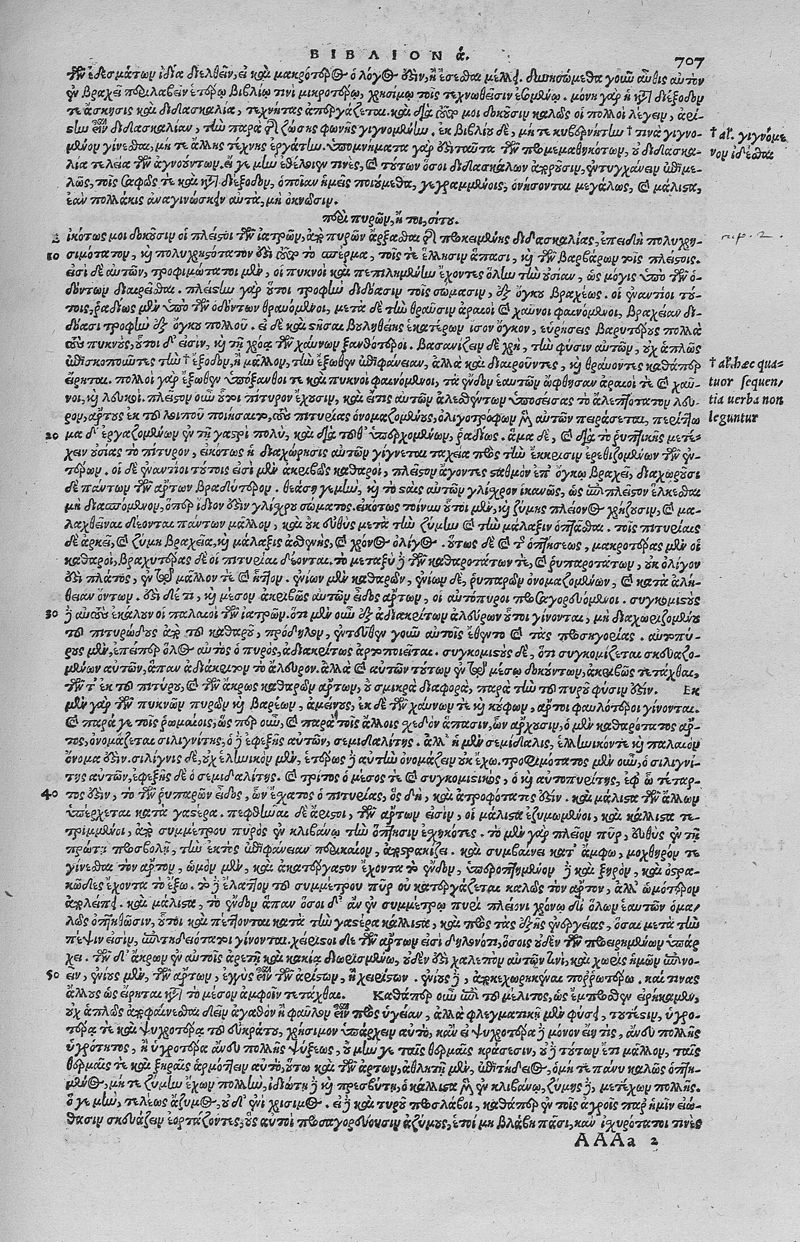 ΒΙΒΛΙΟΝ ά. 707
τῶν ἐδεσμάτων ἰδίᾳ διελθεῖν, εἰ καὶ μακρότερος ὁ λόγος ἐστὶν, ἢ ἔσεσθαι μέλλει. δυνησόμεθα γοῦν αὖθις αὐτὸν
ἐν βραχεῖ περιλαβεῖν ἑτέρῳ βιβλίῳ τινὶ μικροτέρῳ, χρησίμῳ τοῖς τεχνωθεῖσιν ἐσομένῳ. μόνη γὰρ ἡ κατὰ διέξοδον
τε ἄσκησις καὶ διδασκαλία, τεχνίτας ἀπεργάζεται. καὶ διὰ τοῦτό μοι δοκοῦσιν καλῶς οἱ πολλοὶ λέγειν, ἀρί-
στην εἶναι διδασκαλίαν, τὴν παρὰ τῆς ζώσης φωνῆς γιγνομένην. ἐκ βιβλίου δὲ, μήτε κυβερνήτην † τινὰ γιγνό-
μενον γίνεσθαι, μήτε ἄλλης τέχνης ἐργάτην. ὑπομνήματα γάρ ἐστι ταῦτα τῶν προμεμαθηκότων, οὐ διδασκα-
λία τελεία τῶν ἀγνοούντων. εἴ γε μὴν ἐθέλοιέν τινες, καὶ τούτων ὅσοι διδασκάλων ἀποροῦσιν, ἐντυγχάνειν ἐπιμε-
λῶς, τοῖς σαφῶς τε καὶ κατὰ διέξοδον, ὁποῖαν ἡμεῖς ποιούμεθα, γεγραμμένοις, ὀνήσονται μεγάλως, καὶ μάλιστα,
ἐὰν πολλάκις ἀναγινώσκειν αὐτὰ, μὴ ὀκνῶσιν.
† al. γιγνόμε
νον ἰδέσθαι
περὶ πυρῶν, ἤτοι, σίτου.
cap. 2.
Εἰκότως μοι δοκοῦσιν οἱ πλεῖστοι τῶν ἰατρῶν, ἀπὸ πυρῶν ἄρξασθαι τῆς προκειμένης διδασκαλίας, ἐπειδὴ πολυχρη-
10 σιμότατον, καὶ πολυχρηστότατόν ἐστι τοῦτο τὸ σπέρμα, τοῖς τε ἕλλησιν ἅπασι, καὶ τῶν βαρβάρων τοῖς πλείστοις.
εἰσὶ δὲ αὐτῶν, τροφιμώτατοι μὲν, οἱ πυκνοὶ καὶ πεπιλημένην ἔχοντες ὅλην τὴν οὐσίαν, ὡς μόγις ὑπὸ τῶν ὀ-
δόντων διαιρεῖσθαι. πλείστην γὰρ οὗτοι τροφὴν διδόασιν τοῖς σώμασιν, ἐξ ὄγκου βραχέως. οἱ ἐναντίοι τού-
τοις, ῥᾳδίως μὲν ὑπὸ τῶν ὀδόντων θραυόμενοι, μετὰ δὲ τὴν θραῦσιν ἀραιοὶ καὶ χαῦνοι φαινόμενοι, βραχεῖαν δι-
δόασι τροφὴν ἐξ ὄγκου πολλοῦ. εἰ δὲ καὶ στῆσαι βουληθείης ἑκατέρων ἴσον ὄγκον, εὑρήσεις βαρυτέρους πολλῷ
τοὺς πυκνοὺς, οὗτοι δ' εἰσὶν, καὶ τῇ χρόᾳ τῶν χαύνων ξανθότεροι. Βασανίζειν δὲ χρὴ, τὴν φύσιν αὐτῶν, οὐχ ἁπλῶς
ἐπισκοποῦντες τὴν † ἔξοδον, ἢ μᾶλλον, τὴν ἔξωθεν ἐπιφάνειαν, ἀλλὰ καὶ διαιροῦντες, καὶ θραύοντες καθάπερ
εἴρηται. πολλοὶ γὰρ ἔξωθεν ὑπόξανθοί τε καὶ πυκνοὶ φαινόμενοι, τὰ ἔνδον ἑαυτῶν ὤφθησαν ἀραιοί τε καὶ χαῦ-
νοι, καὶ λευκοί. πλεῖστον οὖν οὗτοι πίτυρον ἔχουσιν, καὶ εἴ τις αὐτῶν ἀλεσθέντων ὑποσείσας τὸ λεπτότατον ἄλευ-
ρον, ἄρτους ἐκ τοῦ λοιποῦ ποιήσαιτο, τοὺς πιτυρίας ὀνομαζομένους, ὀλιγοτρόφων μὲν αὐτῶν πειράσεται, περίττω
20 μα δ' ἐργαζομένων ἐν τῇ γαστρὶ πολὺ, καὶ διὰ τοῦθ' ὑπερχομένων, ῥᾳδίως. ἅμα δὲ, καὶ διὰ τὸ ῥυπτικῆς μετέ-
χειν οὐσίας τὸ πίτυρον, εἰκότως ἡ διαχώρησις αὐτῶν γίγνεται ταχεῖα πρὸς τὴν ἔκκρισιν ἐρεθιζομένων τῶν ἐν-
τέρων. οἱ δὲ ἐναντίοι τούτοις εἰσὶ μὲν ἀκριβῶς καθαροὶ, πλεῖστον ἄγοντες σταθμὸν ἐπ' ὄγκῳ βραχεῖ, διαχωροῦσι
δὲ πάντων τῶν ἄρτων βραδύτερον. θεάσῃ γε μὴν, καὶ τὸ σταῖς αὐτῶν γλίσχρον ἱκανῶς, ὡς ἐπὶ πλεῖστον ἕλκεσθαι
μὴ διασπώμενον, ὅπερ ἴδιόν ἐστιν γλίσχρου σώματος. εἰκότως τοίνυν οὗτοι μὲν, καὶ ζύμης πλέονος χρῄζουσιν, καὶ μα-
λαχθῆναι δέονται πάντων μᾶλλον, καὶ οὐκ εὐθὺς μετὰ τὴν ζύμην καὶ τὴν μάλαξιν ὀπτᾶσθαι. τοῖς πιτυρίαις
δὲ ἀρκεῖ, καὶ ζύμη βραχεῖα, καὶ μάλαξις ἀσθενὴς, καὶ χρόνος ὀλίγος. οὕτως δὲ καὶ τῆς ὀπτήσεως, μακροτέρας μὲν οἱ
καθαροὶ, βραχυτέρας δὲ οἱ πιτυρίαι δέονται. τὸ μεταξὺ δὲ τῶν καθαρωτάτων τε, καὶ ῥυπαρωτάτων, οὐκ ὀλίγον
ἐστὶ πλάτος, ἐν τῷ μᾶλλόν τε καὶ ἧττον. ἐνίων μὲν καθαρῶν, ἐνίων δὲ, ῥυπαρῶν ὀνομαζομένων, καὶ κατὰ ἀλή-
θειαν ὄντων. ἔστι δέ τι, καὶ μέσον ἀκριβῶς αὐτῶν εἶδος ἄρτων, οἱ αὐτόπυροι προσαγορευόμενοι. συγκομιστοὺς
30 δὲ αὐτοὺς ἐκάλουν οἱ παλαιοὶ τῶν ἰατρῶν. ὅτι μὲν οὖν ἐξ ἀδιακρίτων ἀλεύρων οὗτοι γίνονται, μὴ διαχωριζομένου
τοῦ πιτυρώδους ἀπὸ τοῦ καθαροῦ, πρόδηλον, ἐντεῦθεν γοῦν αὐτοῖς ἔθεντο καὶ τὰς προσηγορίας. αὐτοπύ-
ρους μὲν, ἐπείπερ ὅλος αὐτὸς ὁ πυρὸς, ἀδιακρίτως ἀρτοποιεῖται. συγκομιστοὺς δὲ, ὅτι συγκομίζεται σκευαζο-
μένων αὐτῶν, ἅπαν ἀδιάκριτον τὸ ἄλευρον. ἀλλὰ καὶ αὐτῶν τούτων ἐν τῷ μέσῳ δοκούντων, ἀκριβῶς τετάχθαι,
τῶν τ' ἐκ τοῦ πιτύρου, καὶ τῶν ἄκρως καθαρῶν ἄρτων, οὐ σμικρὰ διαφορὰ, παρὰ τὴν τοῦ πυροῦ φύσιν ἐστίν. Ἐκ
μὲν γὰρ τῶν πυκνῶν πυρῶν καὶ βαρέων, ἀμείνους, ἐκ δὲ τῶν χαύνων τε καὶ κούφων, ἄρτοι φαυλότεροι γίνονται.
καὶ παρά γε τοῖς ῥωμαίοις, ὥσπερ οὖν, καὶ παρὰ τοῖς ἄλλοις σχεδὸν ἅπασιν, ὧν ἄρχουσιν, ὁ μὲν καθαρότατος ἄρ-
τος, ὀνομάζεται σιλιγνίτης, ὁ δὲ ἐφεξῆς αὐτῶν, σεμιδαλίτης. ἀλλ' ἡ μὲν σεμίδαλις, ἑλληνικόν τε καὶ παλαιὸν
ὄνομά ἐστιν. σίλιγνις δὲ, οὐχ ἑλληνικὸν μὲν, ἑτέρως δὲ αὐτὴν ὀνομάζειν οὐκ ἔχω. τροφιμώτατος μὲν οὖν, ὁ σιλιγνί-
της αὐτῶν, ἐφεξῆς δὲ ὁ σεμιδαλίτης. καὶ τρίτος ὁ μέσος τε καὶ συγκομιστικὸς, ὁ καὶ αὐτοπυρίτης, ἐφ' ᾧ τέταρ-
40 τός ἐστιν, τὸ τῶν ῥυπαρῶν εἶδος, ὧν ἔσχατος ὁ πιτυρίας, ὃς δὴ, καὶ ἀτροφώτατός ἐστιν. καὶ μάλιστα τῶν ἄλλων
ὑπέρχεται κατὰ γαστέρα. πεφθῆναι δὲ ἄριστοι, τῶν ἄρτων εἰσὶν, οἱ μάλιστα ἐζυμωμένοι, καὶ κάλλιστα τε-
τριμμένοι, ἀπὸ συμμέτρου πυρὸς ἐν κλιβάνῳ τὴν ὄπτησιν ἐσχηκότες. τὸ μὲν γὰρ πλεῖον πῦρ, εὐθὺς ἐν τῇ
πρώτῃ προσβολῇ, τὴν ἐκτὸς ἐπιφάνειαν περικαῖον, ἀποστρακίζει. καὶ συμβαίνει κατ' ἄμφω, μοχθηρὸν τε
γίνεσθαι τὸν ἄρτον, ὠμὸν μὲν, καὶ ἀκατέργαστον ἔχοντα τὸ ἔνδον, ὑπεροπτημένον δὲ καὶ ξηρὸν, καὶ ὀστρα-
κῶδες ἔχοντα τὸ ἔξω. τὸ δὲ ἔλαττον τοῦ συμμέτρου πῦρ οὐ κατεργάζεται καλῶς τὸν ἄρτον, ἀλλ' ὠμότερον
ἀπολείπει. καὶ μάλιστα, τὸ ἔνδον ἅπαν ὅσοι δ' ἂν ἐν συμμέτρῳ πυρὶ πλείονι χρόνῳ δι' ὅλων ἑαυτῶν ὁμα-
λῶς ὀπτηθῶσιν, οὗτοι καὶ πέττονται κατὰ τὴν γαστέρα κάλλιστα, καὶ πρὸς τὰς ἑξῆς ἐνεργείας, ὅσαι μετὰ τὴν
πέψιν εἰσὶν, ἐπιτηδειότατοι γίνονται. χείριστοι δὲ τῶν ἄρτων εἰσὶ δηλονότι, ὅσοις οὐδὲν τῶν προειρημένων ὑπάρ-
χει. τῶν δ' ἄκρων ἐν αὐτοῖς ἀρετῇ καὶ κακίᾳ διωρισμένων, οὐδέν ἐστι χαλεπὸν αὐτῶν τινὶ, καὶ χωρὶς ἡμῶν ἐπινο-
50 εῖν, ἐνίους μὲν, τῶν ἄρτων, ἐγγὺς εἶναι τῶν ἀρίστων, ἢ χειρίστων. ἐνίους δὲ, ἀποκεχωρηκέναι πορρωτέρω. καί τινας
ἄλλους ὡς εἴρηται κατὰ τὸ μέσον ἀμφοῖν τετάχθαι. Καθάπερ οὖν ἐπὶ τοῦ μέλιτος, ὡς ἔμπροσθεν εἰρήκαμεν,
οὐχ ἁπλῶς ἀποφαίνεσθαι δεῖν ἀγαθὸν ἢ φαῦλον εἶναι πρὸς ὑγείαν, ἀλλὰ φλεγματικῇ μὲν φύσει, τουτέστιν, ὑγρο-
τέρᾳ τε καὶ ψυχροτέρᾳ τοῦ εὐκράτου, χρήσιμον ὑπάρχειν αὐτὸ, κἂν εἰ ψυχροτέρα δὲ μόνον εἴη τις, ἄνευ πολλῆς
ὑγρότητος, ἢ ὑγροτέρα ἄνευ πολλῆς ψύξεως, οὐ μήν γε ταῖς θερμαῖς κράσεσιν, οὐδὲ τούτων ἔτι μᾶλλον, ταῖς
θερμαῖς τε καὶ ξηραῖς ἁρμόττειν αὐτό. οὕτω καὶ τῶν ἄρτων, ἀθλητῇ μὲν, ἐπιτήδειος, ὁ μήτε πάνυ καλῶς ὀπτη-
μένος, μήτε ζύμην ἔχων πολλὴν, ἰδιώτῃ δὲ καὶ πρεσβύτῃ, ὁ κάλλιστα μὲν ἐν κλιβάνῳ, ζύμης δὲ, μετέχων πολλῆς.
ὁ γε μὴν, τελέως ἄζυμος, οὐδ' ἑνὶ χρήσιμος. εἰ δὲ καὶ τυροῦ προσλάβοι, καθάπερ ἐν τοῖς ἀγροῖς παρ' ἡμῖν εἰώ-
θασιν σκευάζειν ἑορτάζοντες, οὓς αὐτοὶ προσαγορεύουσιν ἀζύμους, ἕτοιμη βλάβη πᾶσι, κἂν ἰσχυρότατοί τινες
† al. hæc qua-
tuor sequen-
tia uerba non
leguntur
AAAa 2